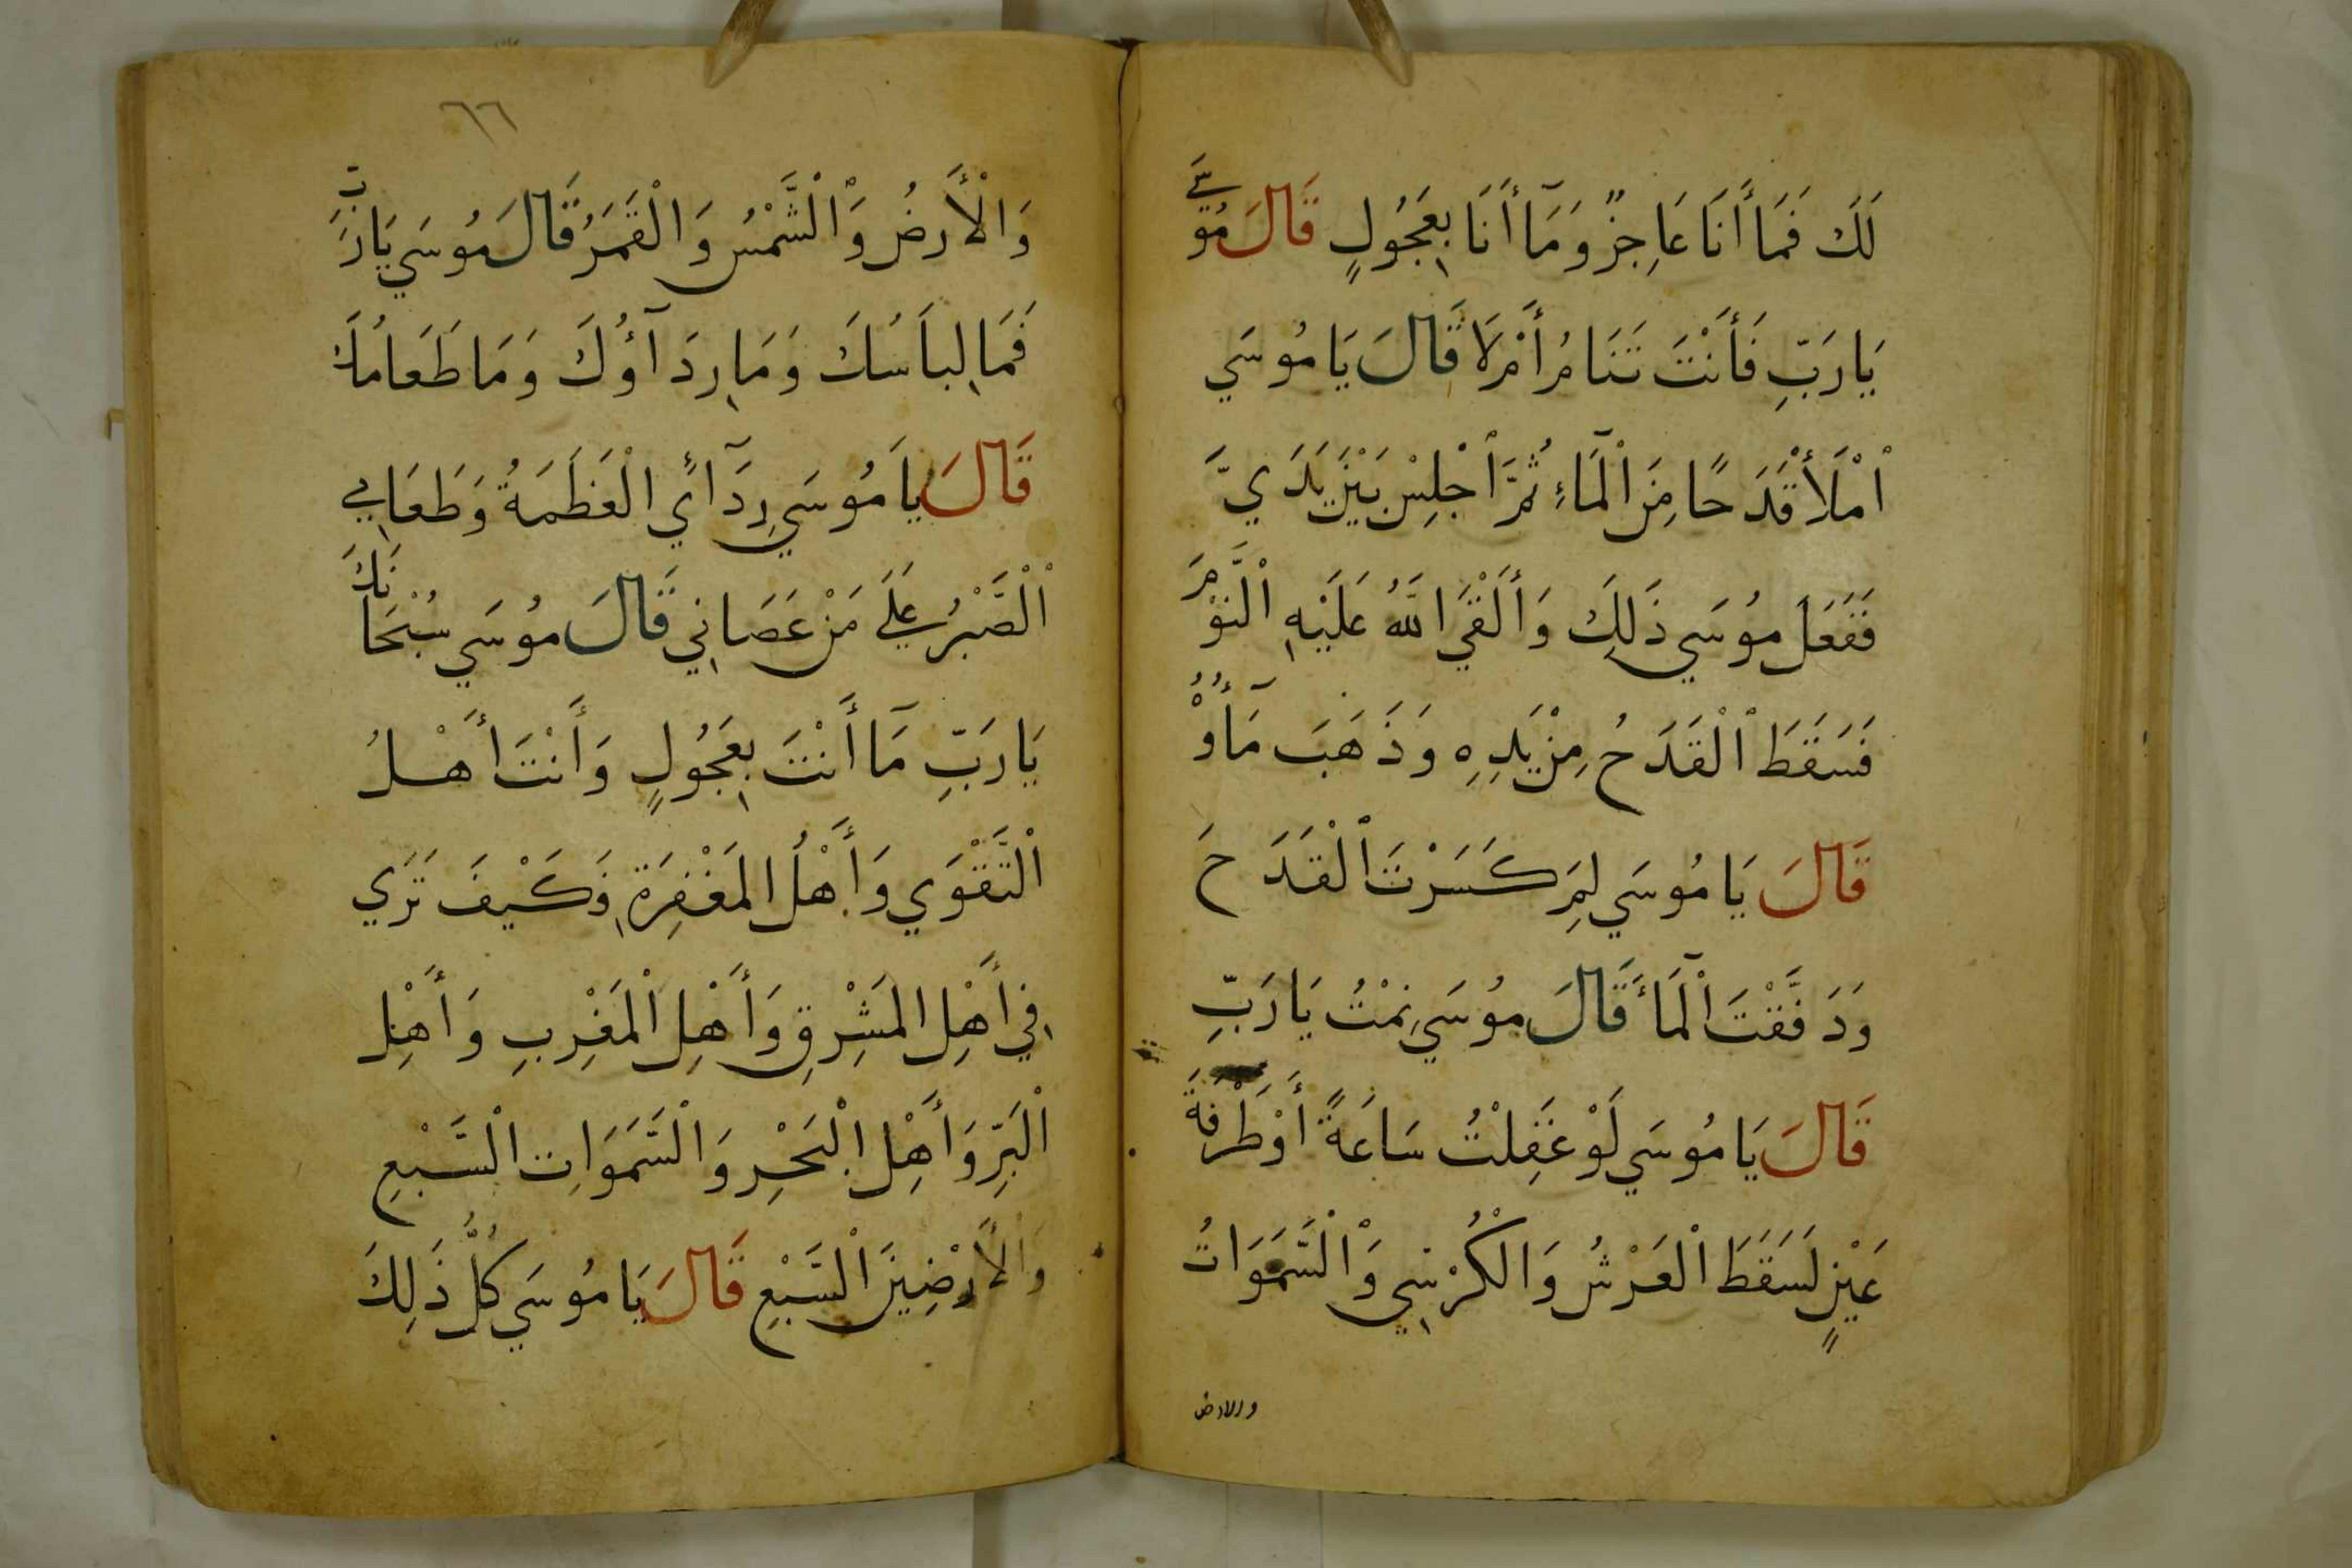 لَكَ فَمَا أَنَا عَاجِزٌ وَمَآ أَنَا بِعَجُولٍ قَالَ مُوسَي
يَا رَبِّ فَأَنْتَ تَنَامُ أَمْ لَا قَالَ يَا مُوسَي
اْمْلَأْ قَدَحًا مِنَ الْمَآءِ ثُمَّ اْجْلِسْ بَيْنَ يَدَيَّ
فَفَعَلَ مُوسَي ذَلِكَ وَأَلْقَي اللَّهُ عَلَيْهِ الْنَّوْمَ
فَسَقَطَ اْلْقَدَحُ مِنْ يَدِهِ وَذَهَبَ مَآؤُهُ
قَالَ يَا مُوسَي لِمَ كَسَرْتَ اْلْقَدَحَ
وَدَفَّقْتَ اْلْمَآءَ قَالَ مُوسَي نِمْتُ يَا رَبِّ
قَالَ يَا مُوسَي لَوْ غَفِلْتُ سَاعَةً أَوْ طَرْفَةَ
عَيْنٍ لَسَقَطَ الْعَرْشُ وَالْكُرْسِي وَاْلْسَّمَوَاتُ
والارض
٦٦
وَاْلْأَرضُ وَاْلْشَّمْسُ وَالْقَمَرُ قَالَ مُوسَي يَا رَبِّ
فَمَا لِبَاسُكَ وَمَا رِدَآؤُكَ وَمَا طَعَامُكَ
قَالَ يَا مُوسَي رِدَآئي الْعَظَمَةُ وَطَعَامِي
اْلْصَّبْرُ عَلَي مَنْ عَصَانِي قَالَ مُوسَي سُبْحَانَكَ
يَا رَبِّ مَآ أَنْتَ بِعَجُولٍ وَأَنْتَ أَهْلُ
اْلْتَّقْوَي وَأَهْلُ الْمَغْفِرَةِ فَكَيْفَ تَرَي
فِي أَهْلِ الْمَشْرِقِ وَأَهْلِ الْمَغْرِبِ وَأَهْلِ
اْلْبَرِّ وَأَهْلِ الْبَحْرِ وَالْسَّمَوَاتِ الْسَّبْعِ
وَالْأَرْضِينَ الْسَّبْعِ قَالَ يَا مُوسَي كُلُّ ذَلِكَ